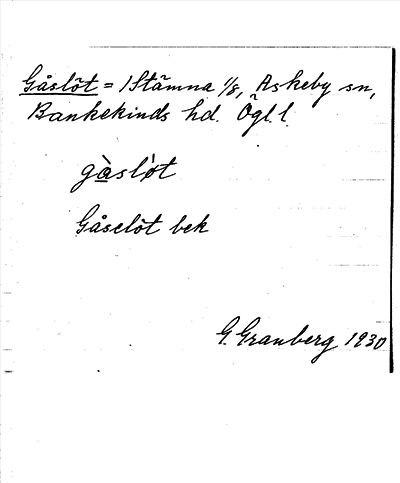 Gåslöt = 1 Stämna 1/8, Askeby sn,
Bankekinds hd. Ögl. l.
gàslö̀t
Gåselöt bek
G. Granberg 1930